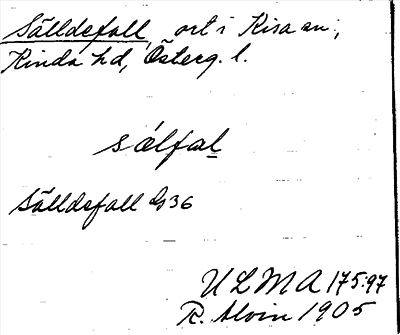 Sälldefall, ort i Kisa sn;
Kinda hd, Österg. l.
sälfal
Sälldefall G36
ULMA 175:97
R. Alvin 1905